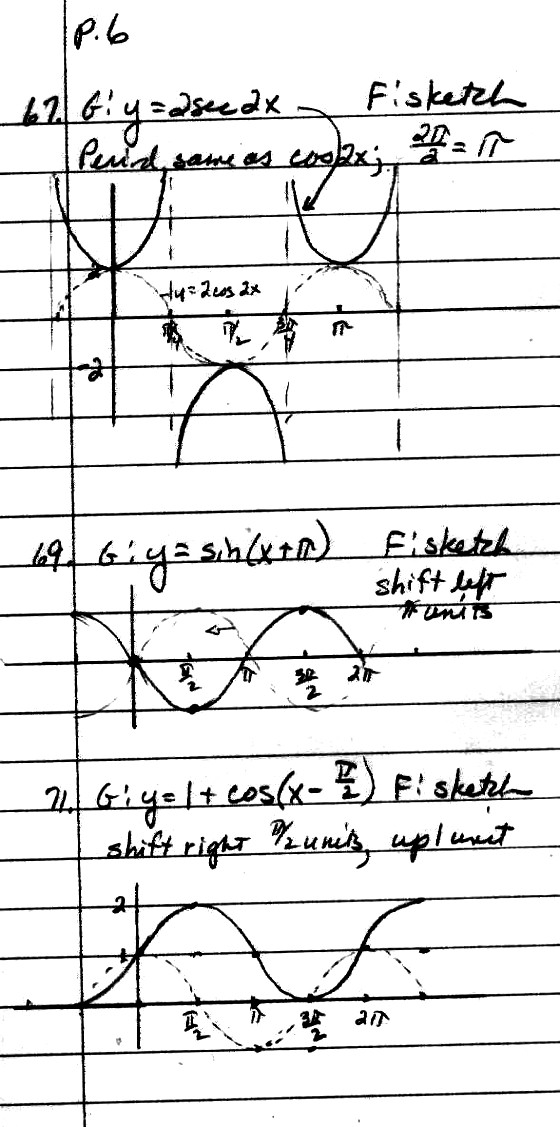 P.6
67. G: y = 2sec2x F: sketch
Period same as cos2x; 2π/2 = π
2
y = 2cos 2x
π/4 π/2 3π/4 π
-2
69. G: y = sin(x+π) F: sketch
shift left
π units
π/2 π 3π/2 2π
71. G: y = 1 + cos(x - π/2) F: sketch
shift right π/2 units, up 1 unit
2
1
π/2 π 3π/2 2π